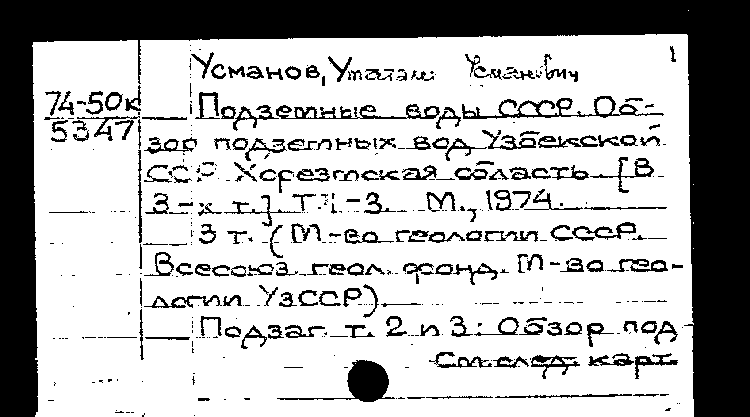 1
Усманов, Усманович
74-50к Подземные воды СССР. Об-
5347 зор подземных вод Узбекской
ССР Хорезмская область. [В
3-х т.]. Т. 1-3. М., 1974.
3 т. (М-во геологии СССР.
Всесоюз. геол. фонд. М-во гео-
логии УзССР).
Подзаг. т. 2 и 3: Обзор под
См. след. карт.